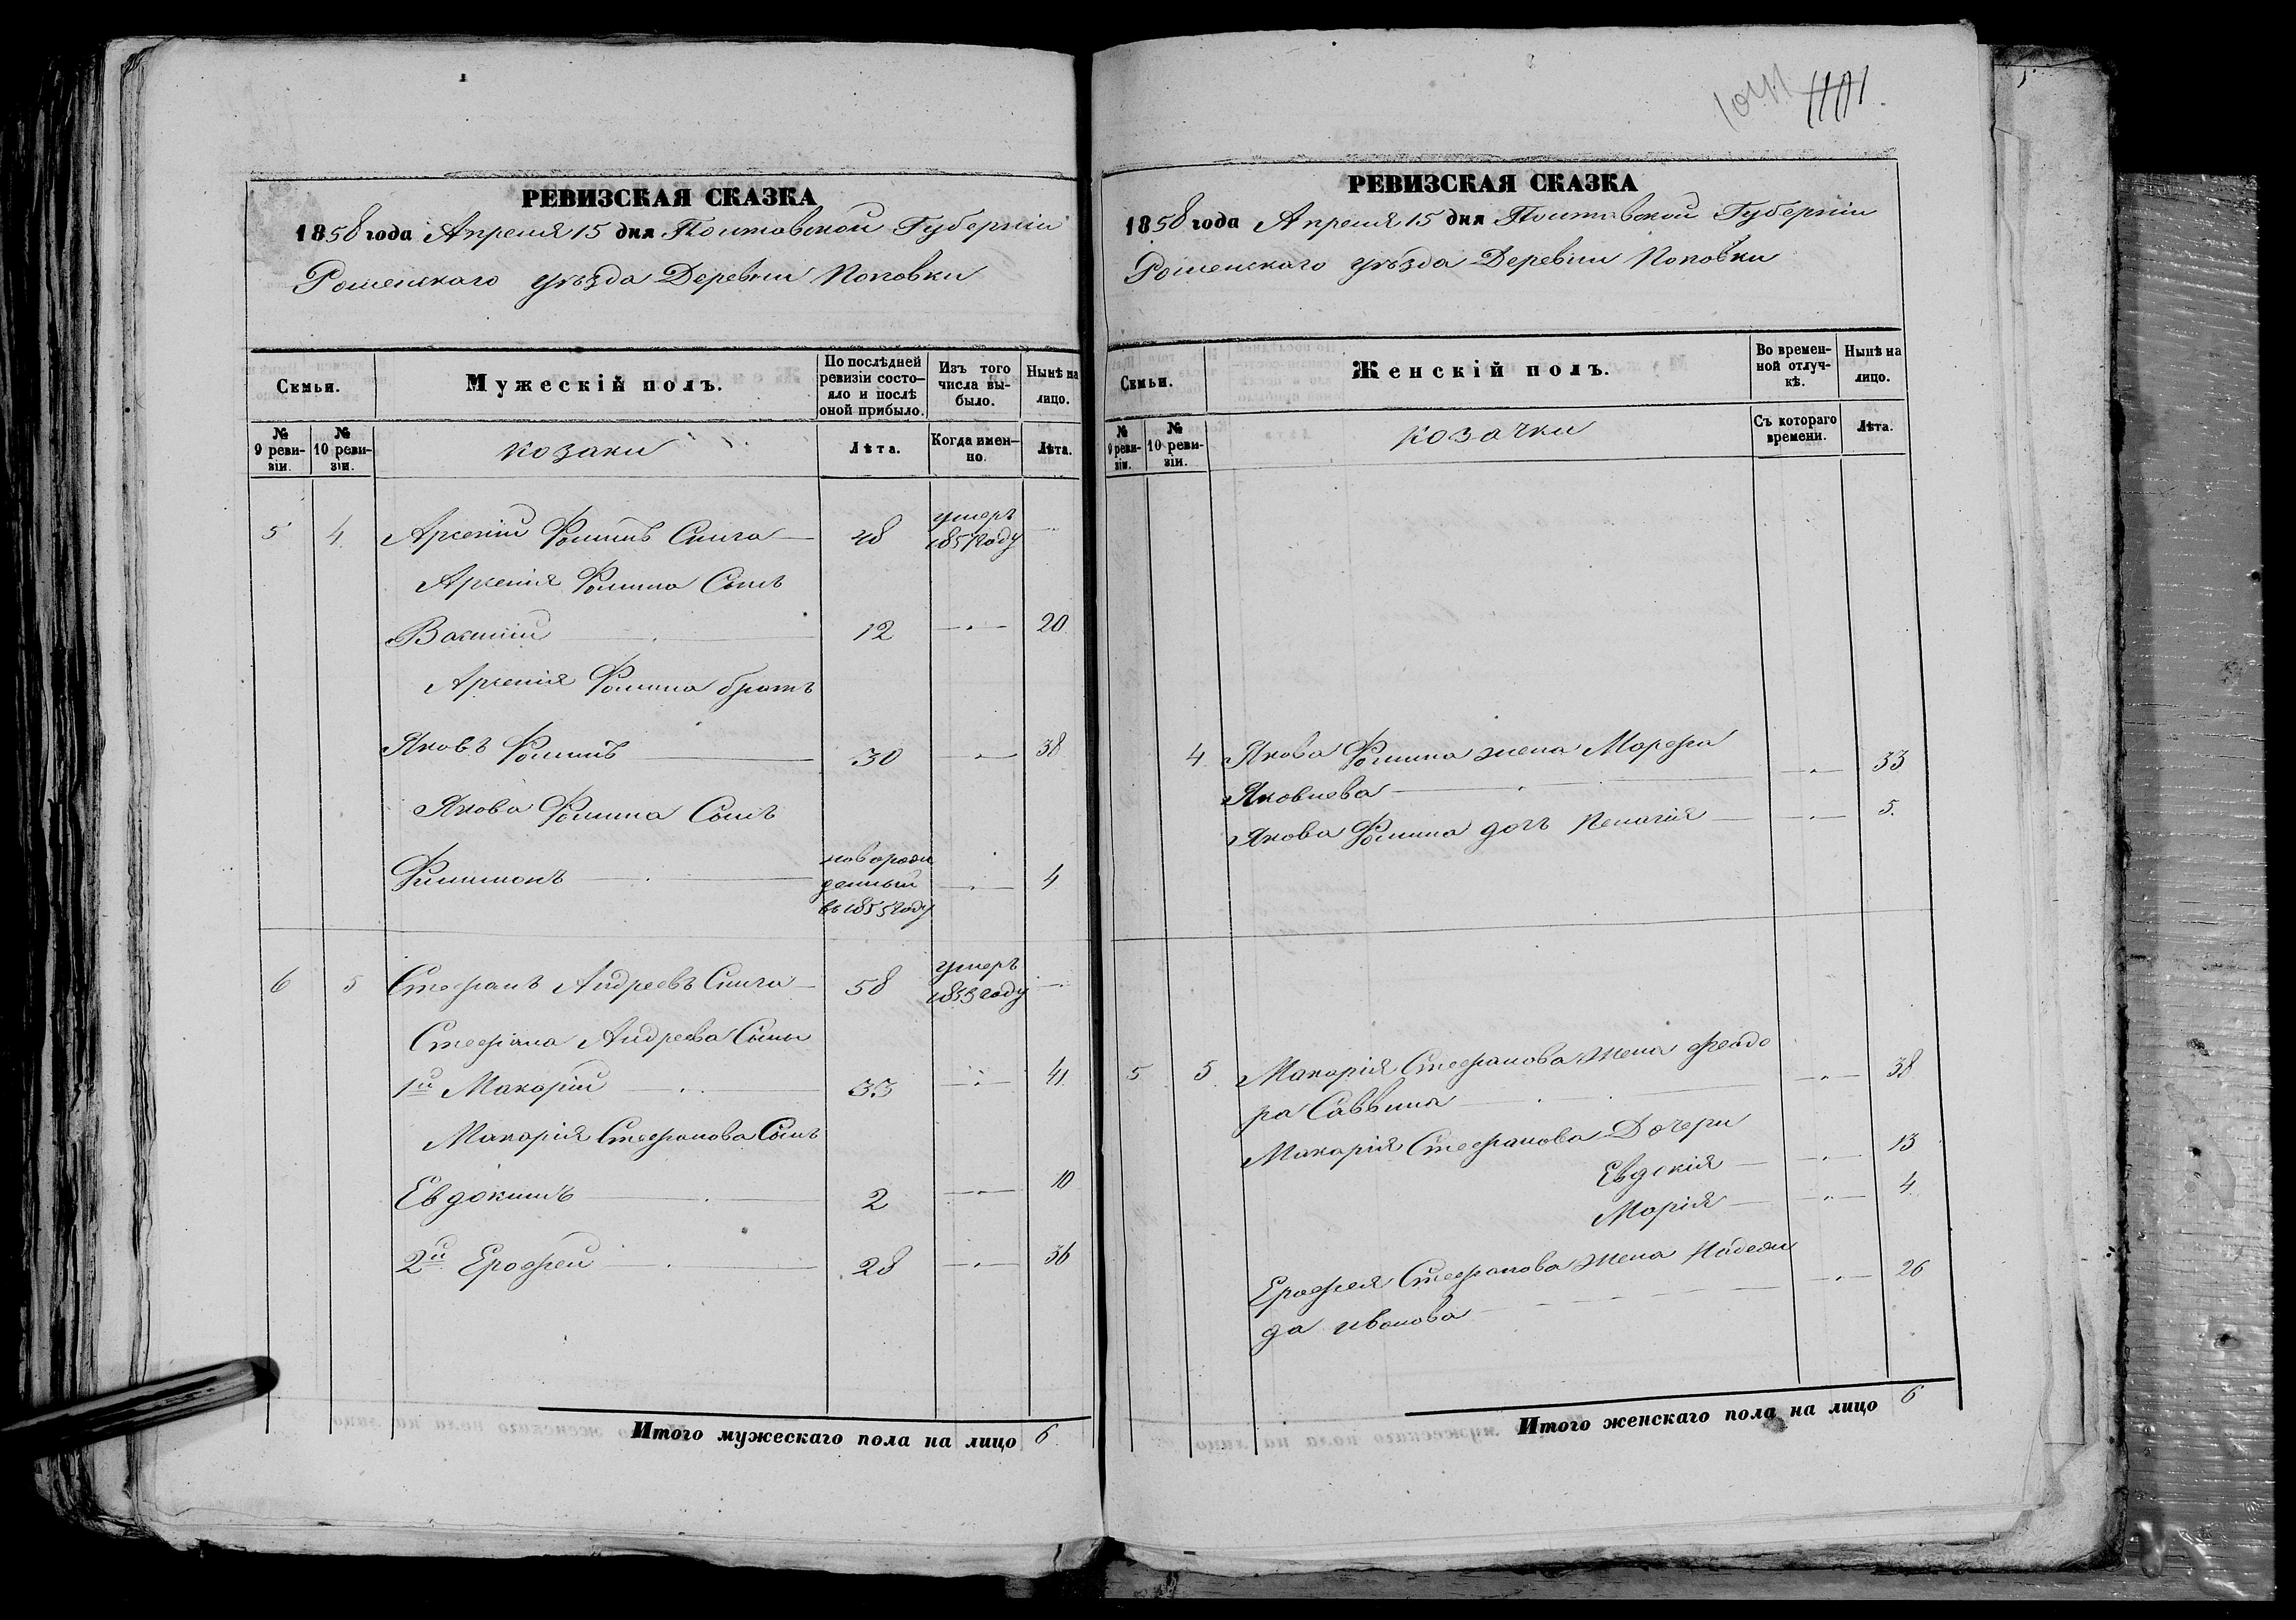 1041 1101
РЕВИЗСКАЯ СКАЗКА
1858 года Апреля 15 дня Полтавской Губерніи
Роменскаго уѣзда Деревни Поповки
Семьи.
Мужескій полъ.
По послѣдней ревизіи состояло и послѣ оной прибыло.
Изъ того числа выбыло.
Нынѣ на лицо.
№ 9 ревизіи.
№ 10 ревизіи.
козаки
Лѣта.
Когда именно.
Лѣта.
5 4. Арсеній Фоминъ Слига 48 умеръ 1857 году
Арсенія Фомина Сынъ
Василій 12 20.
Арсенія Фомина братъ
Яковъ Фоминъ 30 38
Якова Фомина Сынъ
Филимонъ новорожденный въ 1855 году 4
6 5 Стефанъ Андреевъ Слига 58 умеръ 1853 году
Стефана Андреева Сыны
1й Макарій 33 41.
Макарія Стефанова Сынъ
Евдокимъ 2 10
2й Ерофей 28 36
Итого мужескаго пола на лицо 6.
РЕВИЗСКАЯ СКАЗКА
1858 года Апреля 15 дня Полтавской Губерніи
Роменскаго уѣзда Деревни Поповки
Семьи.
Женскій полъ.
Во временной отлучкѣ.
Нынѣ на лицо.
№ 9 ревизіи.
№ 10 ревизіи.
козачки
Съ котораго времени.
Лѣта.
4. Якова Фомина жена Марфа
Яковлева 33.
Якова Фомина дочь Пелагія 5.
5 5. Макарія Стефанова жена Феодо
ра Саввина 38
Макарія Стефанова Дочери
Евдокія 13
Марія 4.
Ерофея Стефанова жена Надеж
да Иванова 26
Итого женскаго пола на лицо 6